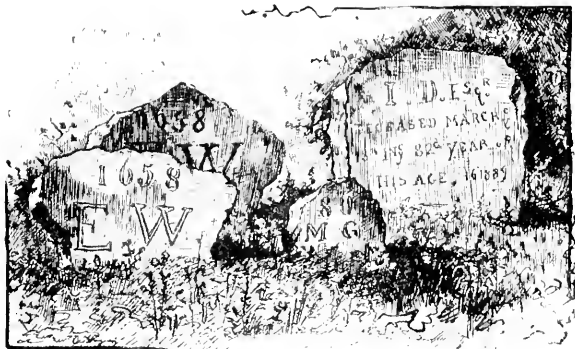 1658
W
1658
EW
8
M G
I. D. ESqR
CEASED MARCH Ye
IN HS 82d YEAR OF
HIS AGE, 1688/9